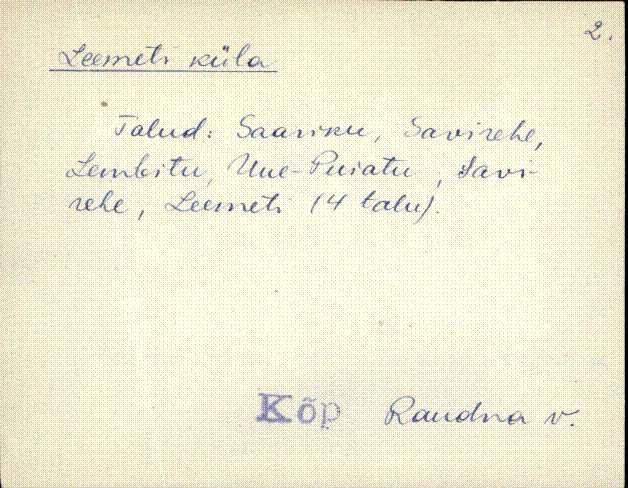 2.
Leemeti küla
Talud: Saariku, Savirehe,
Lembitu, Uue-Puiatu, Savi-
rehe, Leemeti (4 talu).
Kõp Raudna v.